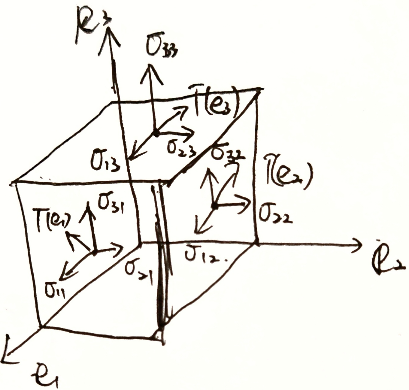 e₃
σ₃₃
T(e₃)
σ₁₃
σ₂₃
σ₃₂
T(e₂)
σ₃₁
T(e₁)
σ₂₂
σ₁₁
σ₂₁
σ₁₂.
e₂
e₁